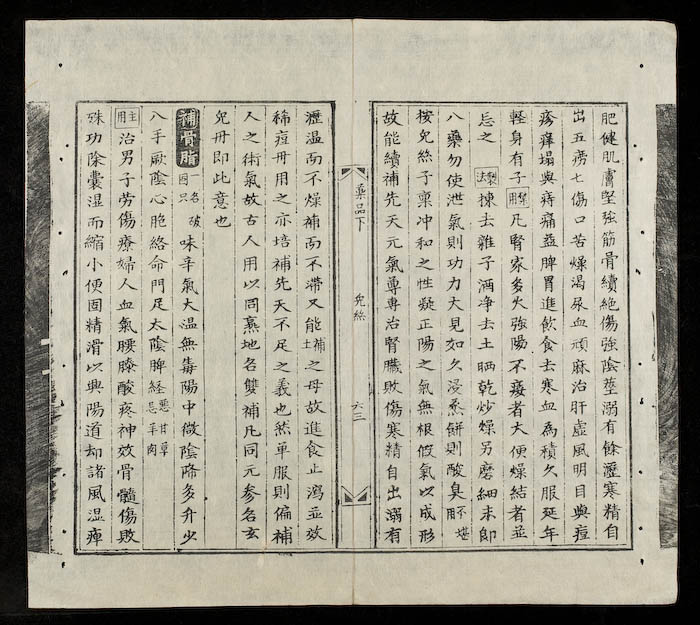 肥健肌膚堅強筋骨續絕傷強陰莖溺有餘瀝寒精自
出五癆七傷口苦燥渴尿血頑麻治肝虛風明目與痘
疹癢塌與痔痛益脾胃進飲食去寒血為積久服延年
輕身有子禁用凡腎家多火強陽不痿者大便燥結者並
忌之製法揀去雜子酒净去土晒乾炒燥另磨細末即
八藥勿使泄氣則功力大見如久浸蒸餅則酸臭不堪用
按兔絲子稟冲和之性凝正陽之氣無根假氣以成形
故能續補先天元氣尊專治腎臟敗傷寒精自出溺有
藥品下 兔絲 六三
瀝温而不燥補而不滯又能補土之母故進食止瀉並效
稀痘丹用之亦培補先天不足之義也然單服則偏補
人之術氣故古人用以同熟地名雙補凡同元参名玄
兔丹即此意也
補骨脂一名破固只味辛氣大温無毒陽中微陰降多升少
八手厥陰心胞絡命門足太陰脾経惡甘草忌羊肉
主用治男子勞傷療婦人血氣腰膝酸疼神效骨髓傷敗
殊功除囊湿而縮小便固精滑以興陽道却諸風湿痺